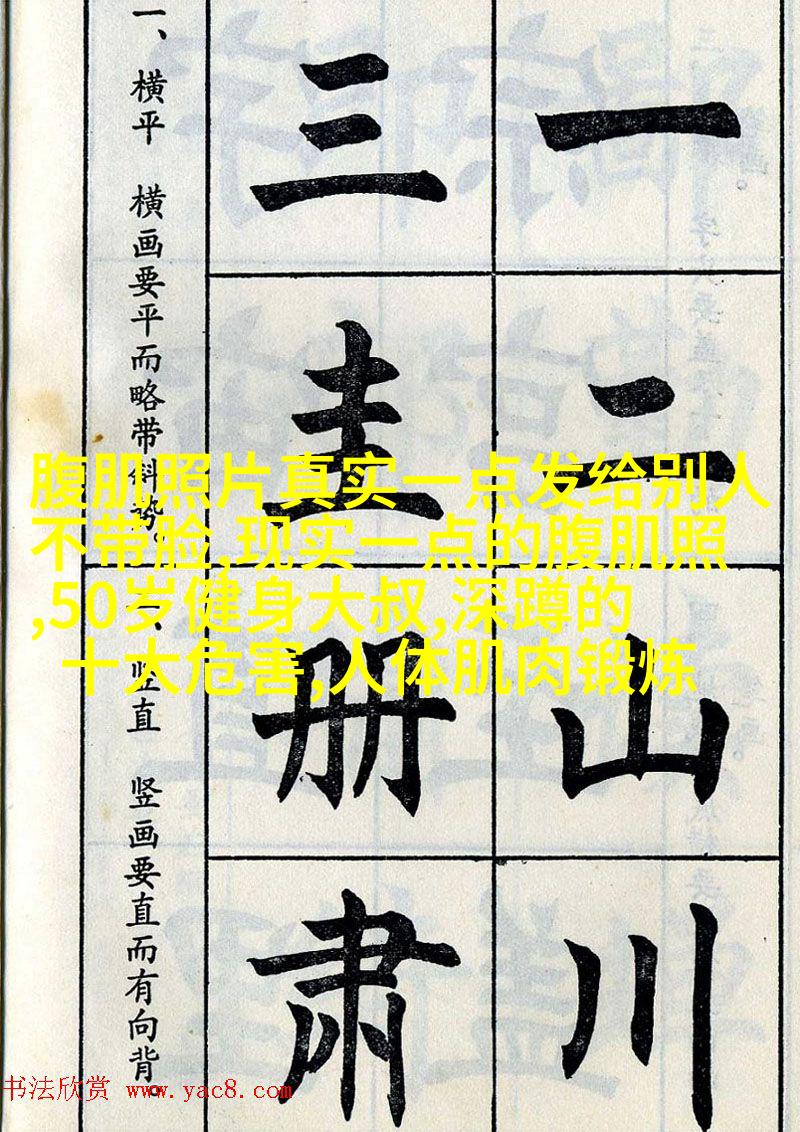 一
二
山
川
三
圭
册
肃
一、横平 横画要平而略带斜势。
二、竖直 竖画要直而有向背。
腹肌照片真实一点发给别人
不带脸,现实一点的腹肌照
,50岁健身大叔,深蹲的
十大危害,人体肌肉锻炼
书法欣赏 www.yac8.com